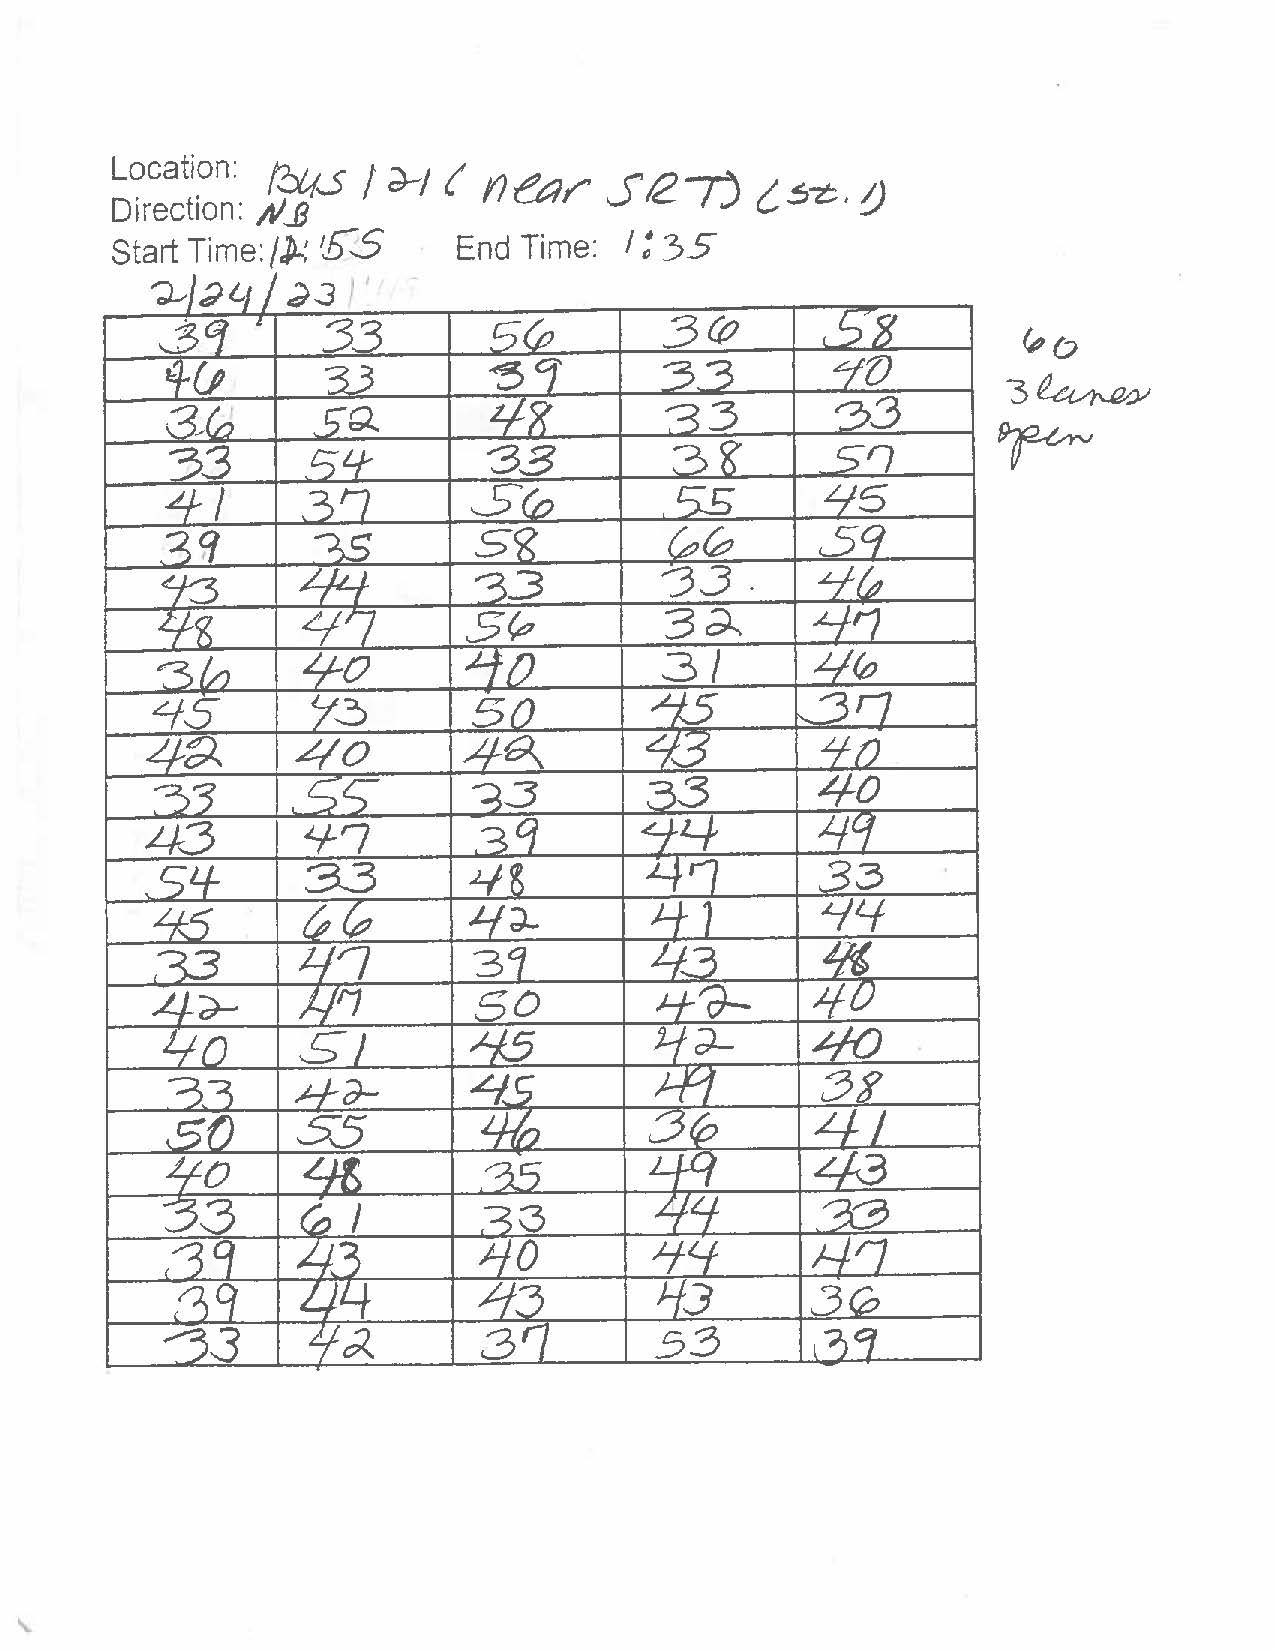 Location: Bus 121 ( near SRT) (st. 1)
Direction: NB
Start Time: 12:55 End Time: 1:35
2/24/23
39 33 56 36 58
60
46 33 39 33 40
3 lanes
36 52 48 33 33
open
33 54 33 38 57
41 37 56 55 45
39 35 58 66 59
43 44 33 33 46
48 47 56 32 47
36 40 40 31 46
45 43 50 45 37
42 40 42 43 40
33 55 33 33 40
43 47 39 44 49
54 33 48 47 33
45 66 42 41 44
33 47 39 43 48
42 47 50 42 40
40 51 45 42 40
33 42 45 49 38
50 55 46 36 41
40 48 35 49 43
33 61 33 44 33
39 43 40 44 47
39 44 43 43 36
33 42 37 53 39